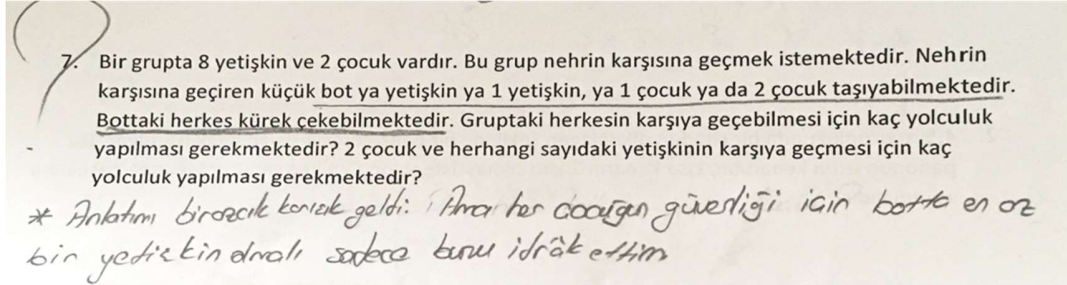 7. Bir grupta 8 yetişkin ve 2 çocuk vardır. Bu grup nehrin karşısına geçmek istemektedir. Nehrin
karşısına geçiren küçük bot ya yetişkin ya 1 yetişkin, ya 1 çocuk ya da 2 çocuk taşıyabilmektedir.
Bottaki herkes kürek çekebilmektedir. Gruptaki herkesin karşıya geçebilmesi için kaç yolculuk
yapılması gerekmektedir? 2 çocuk ve herhangi sayıdaki yetişkinin karşıya geçmesi için kaç
yolculuk yapılması gerekmektedir?
* Anlatımı birazcık karışık geldi. Ama her çocuğun güvenliği için botta en az
bir yetişkin olmalı sadece bunu idrâk ettim